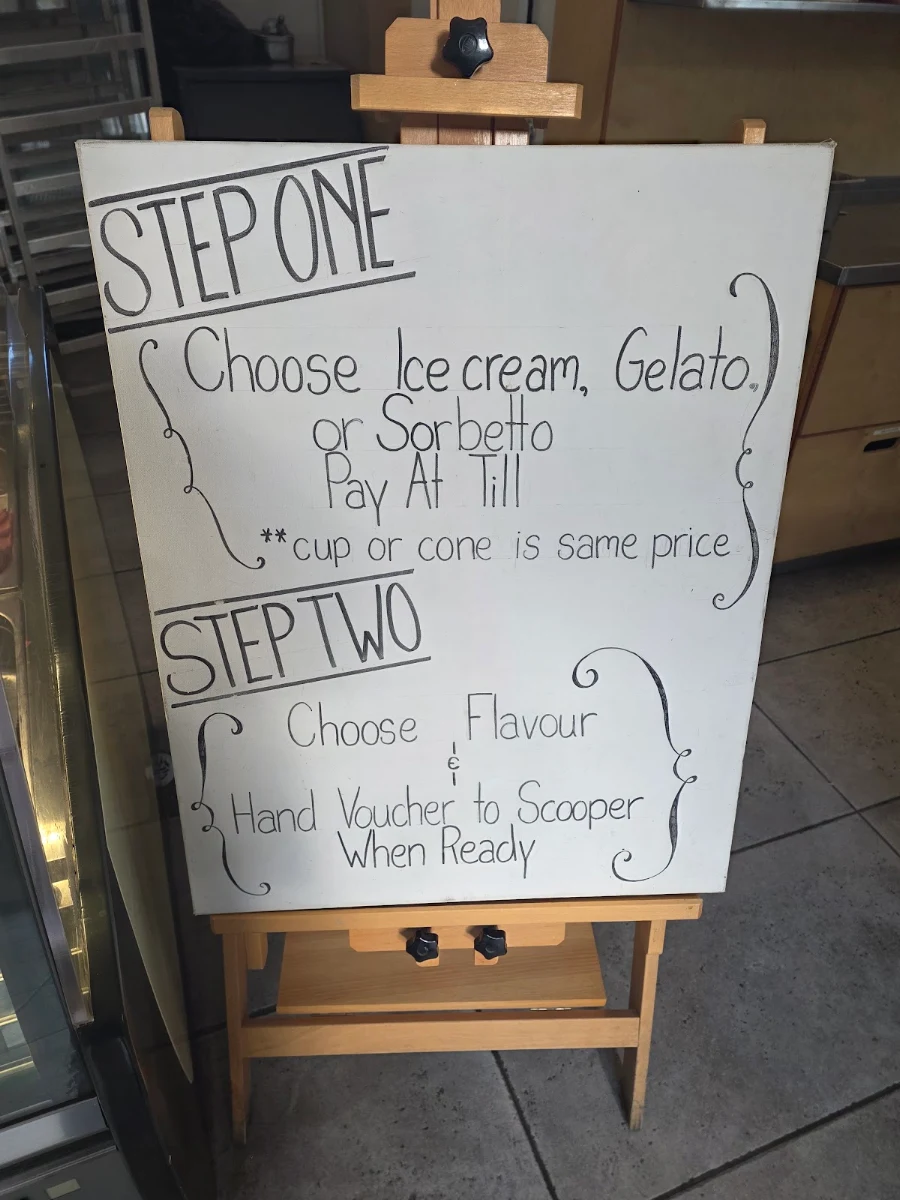 STEP ONE
Choose Ice cream, Gelato,
or Sorbetto
Pay At Till
**cup or cone is same price
STEP TWO
Choose Flavour
&
Hand Voucher to Scooper
When Ready